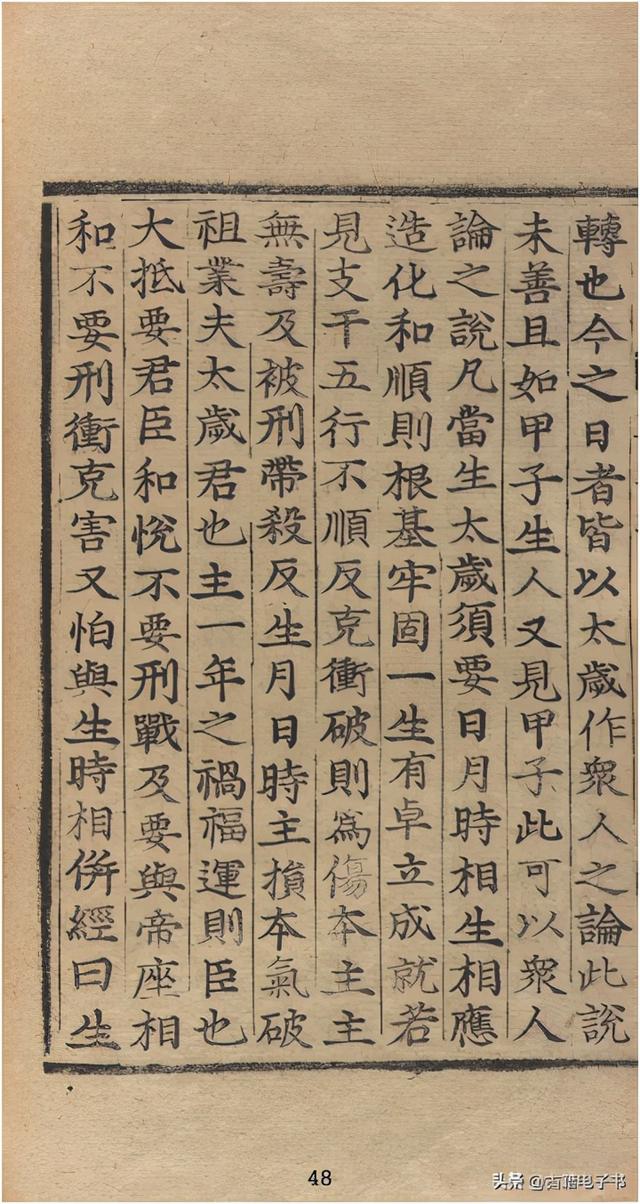 轉也今之日者皆以太歲作衆人之論此說
未善且如甲子生人又見甲子此可以衆人
論之說凡當生太歲須要日月時相生相應
造化和順則根基牢固一生有卓立成就若
見支干五行不順反克衝破則爲傷本主主
無壽及被刑帶殺反生月日時主損本氣破
祖業夫太歲君也主一年之禍福運則臣也
大抵要君臣和悅不要刑戰及要與帝座相
和不要刑衝克害又怕與生時相倂經曰生
48
头条 @古籍电子书